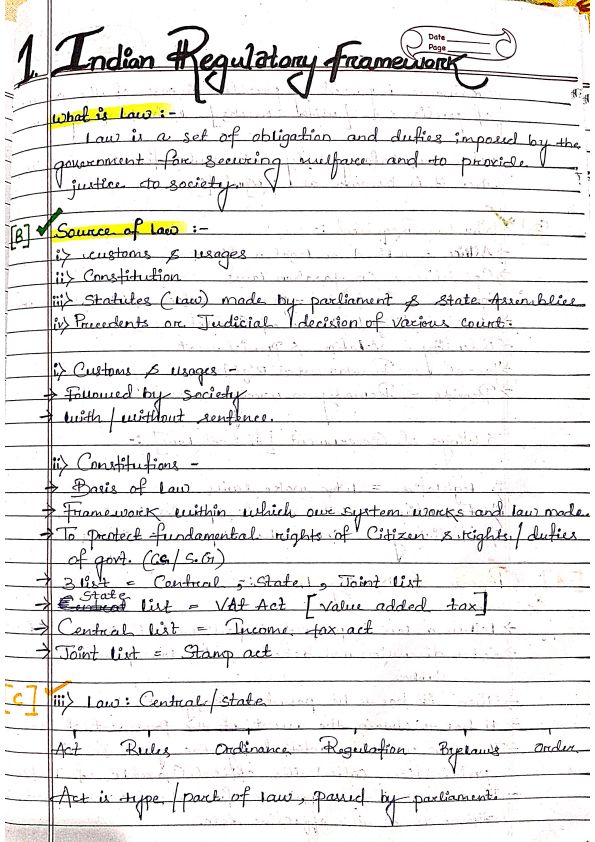 Date
Page
1. Indian Regulatory Framework
What is Law :-
Law is a set of obligation and duties imposed by the
government for securing welfare and to provide
justice to society.
[B] ✓ Source of Law :-
i> customs & usages
ii> Constitution
iii> Statutes (Law) made by parliament & State Assemblies
iv> Precedents or Judicial decision of various court.
i> Customs & usages -
→ Followed by society
→ with / without sentence.
ii> Constitutions -
→ Basis of law
→ Framework within which our system works and law made.
→ To protect fundamental rights of Citizen & rights / duties
of govt. (CG / S.G)
→ 3 list = Central, State, Joint list
→ State list = VAT Act [Value added tax]
→ Central list = Income tax act
→ Joint list = Stamp act
[C] ✓ iii> Law : Central / State
Act Rules Ordinance Regulation Byelaws order
Act is type / part of law, passed by parliament.